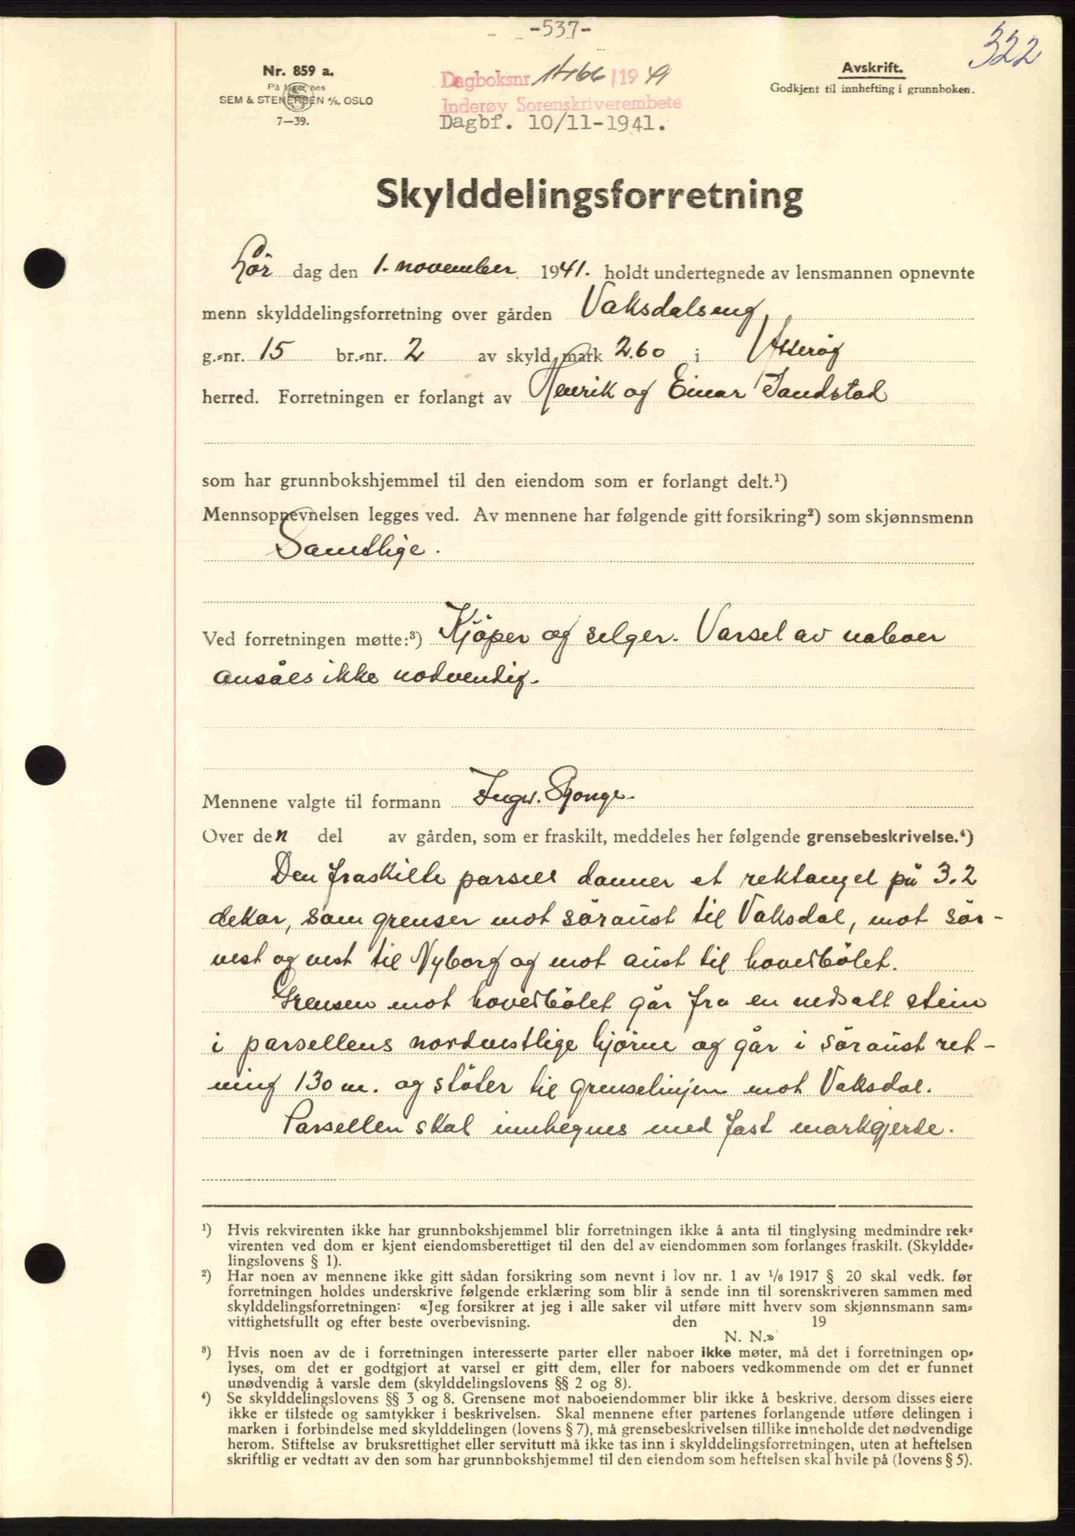 -537-
322
Nr. 859 a.
På lager hos
SEM & STENERSEN A/S, OSLO
7—39.
Dagboksnr. 1466/1941
Inderøy Sorenskriverembete
Dagbf. 10/11-1941.
Avskrift.
Godkjent til innhefting i grunnboken.
Skylddelingsforretning
Lör dag den 1. november 1941. holdt undertegnede av lensmannen opnevnte
menn skylddelingsforretning over gården Vaksdalseng
g.-nr. 15 br.-nr. 2 av skyld mark 2.60 i Ytterøy
herred. Forretningen er forlangt av Henrik og Einar Sandstad
som har grunnbokshjemmel til den eiendom som er forlangt delt.¹)
Mennsopnevnelsen legges ved. Av mennene har følgende gitt forsikring²) som skjønnsmenn
Samtlige.
Ved forretningen møtte:³) Kjöper og selger. Varsel av naboer
ansåes ikke nödvendig.
Mennene valgte til formann Ingv.
Over den del av gården, som er fraskilt, meddeles her følgende grensebeskrivelse.⁴)
Den fraskilte parsell danner et rektangel på 3.2
dekar, som grenser mot söraust til Vaksdal, mot sör-
vest og vest til Nyborg og mot aust til hovedbölet.
Grensen mot hovedbölet går fra en nedsatt stein
i parsellens nordvestlige hjörne og går i söraust ret-
ning 130 m. og stöter til grenselinjen mot Vaksdal.
Parsellen skal innhegnes med fast markgjerde.
¹) Hvis rekvirenten ikke har grunnbokshjemmel blir forretningen ikke å anta til tinglysing medmindre rek-
virenten ved dom er kjent eiendomsberettiget til den del av eiendommen som forlanges fraskilt. (Skyldde-
lingslovens § 1).
²) Har noen av mennene ikke gitt sådan forsikring som nevnt i lov nr. 1 av 1/6 1917 § 20 skal vedk. før
forretningen holdes underskrive følgende erklæring som blir å sende inn til sorenskriveren sammen med
skylddelingsforretningen: «Jeg forsikrer at jeg i alle saker vil utføre mitt hverv som skjønnsmann sam-
vittighetsfullt og efter beste overbevisning. den 19
N. N.»
³) Hvis noen av de i forretningen interesserte parter eller naboer ikke møter, må det i forretningen op-
lyses, om det er godtgjort at varsel er gitt dem, eller for naboers vedkommende om det er funnet
unødvendig å varsle dem (skylddelingslovens §§ 2 og 8).
⁴) Se skylddelingslovens §§ 3 og 8. Grensene mot naboeiendommer blir ikke å beskrive, dersom disses eiere
ikke er tilstede og samtykker i beskrivelsen. Skal mennene efter partenes forlangende utføre delingen i
marken i forbindelse med skylddelingen (lovens § 7), må grensebeskrivelsen tillike inneholde det nødvendige
herom. Stiftelse av bruksrettighet eller servitutt må ikke tas inn i skylddelingsforretningen, uten at heftelsen
skriftlig er vedtatt av den som har grunnbokshjemmel til den eiendom som heftelsen skal hvile på (lovens § 5).